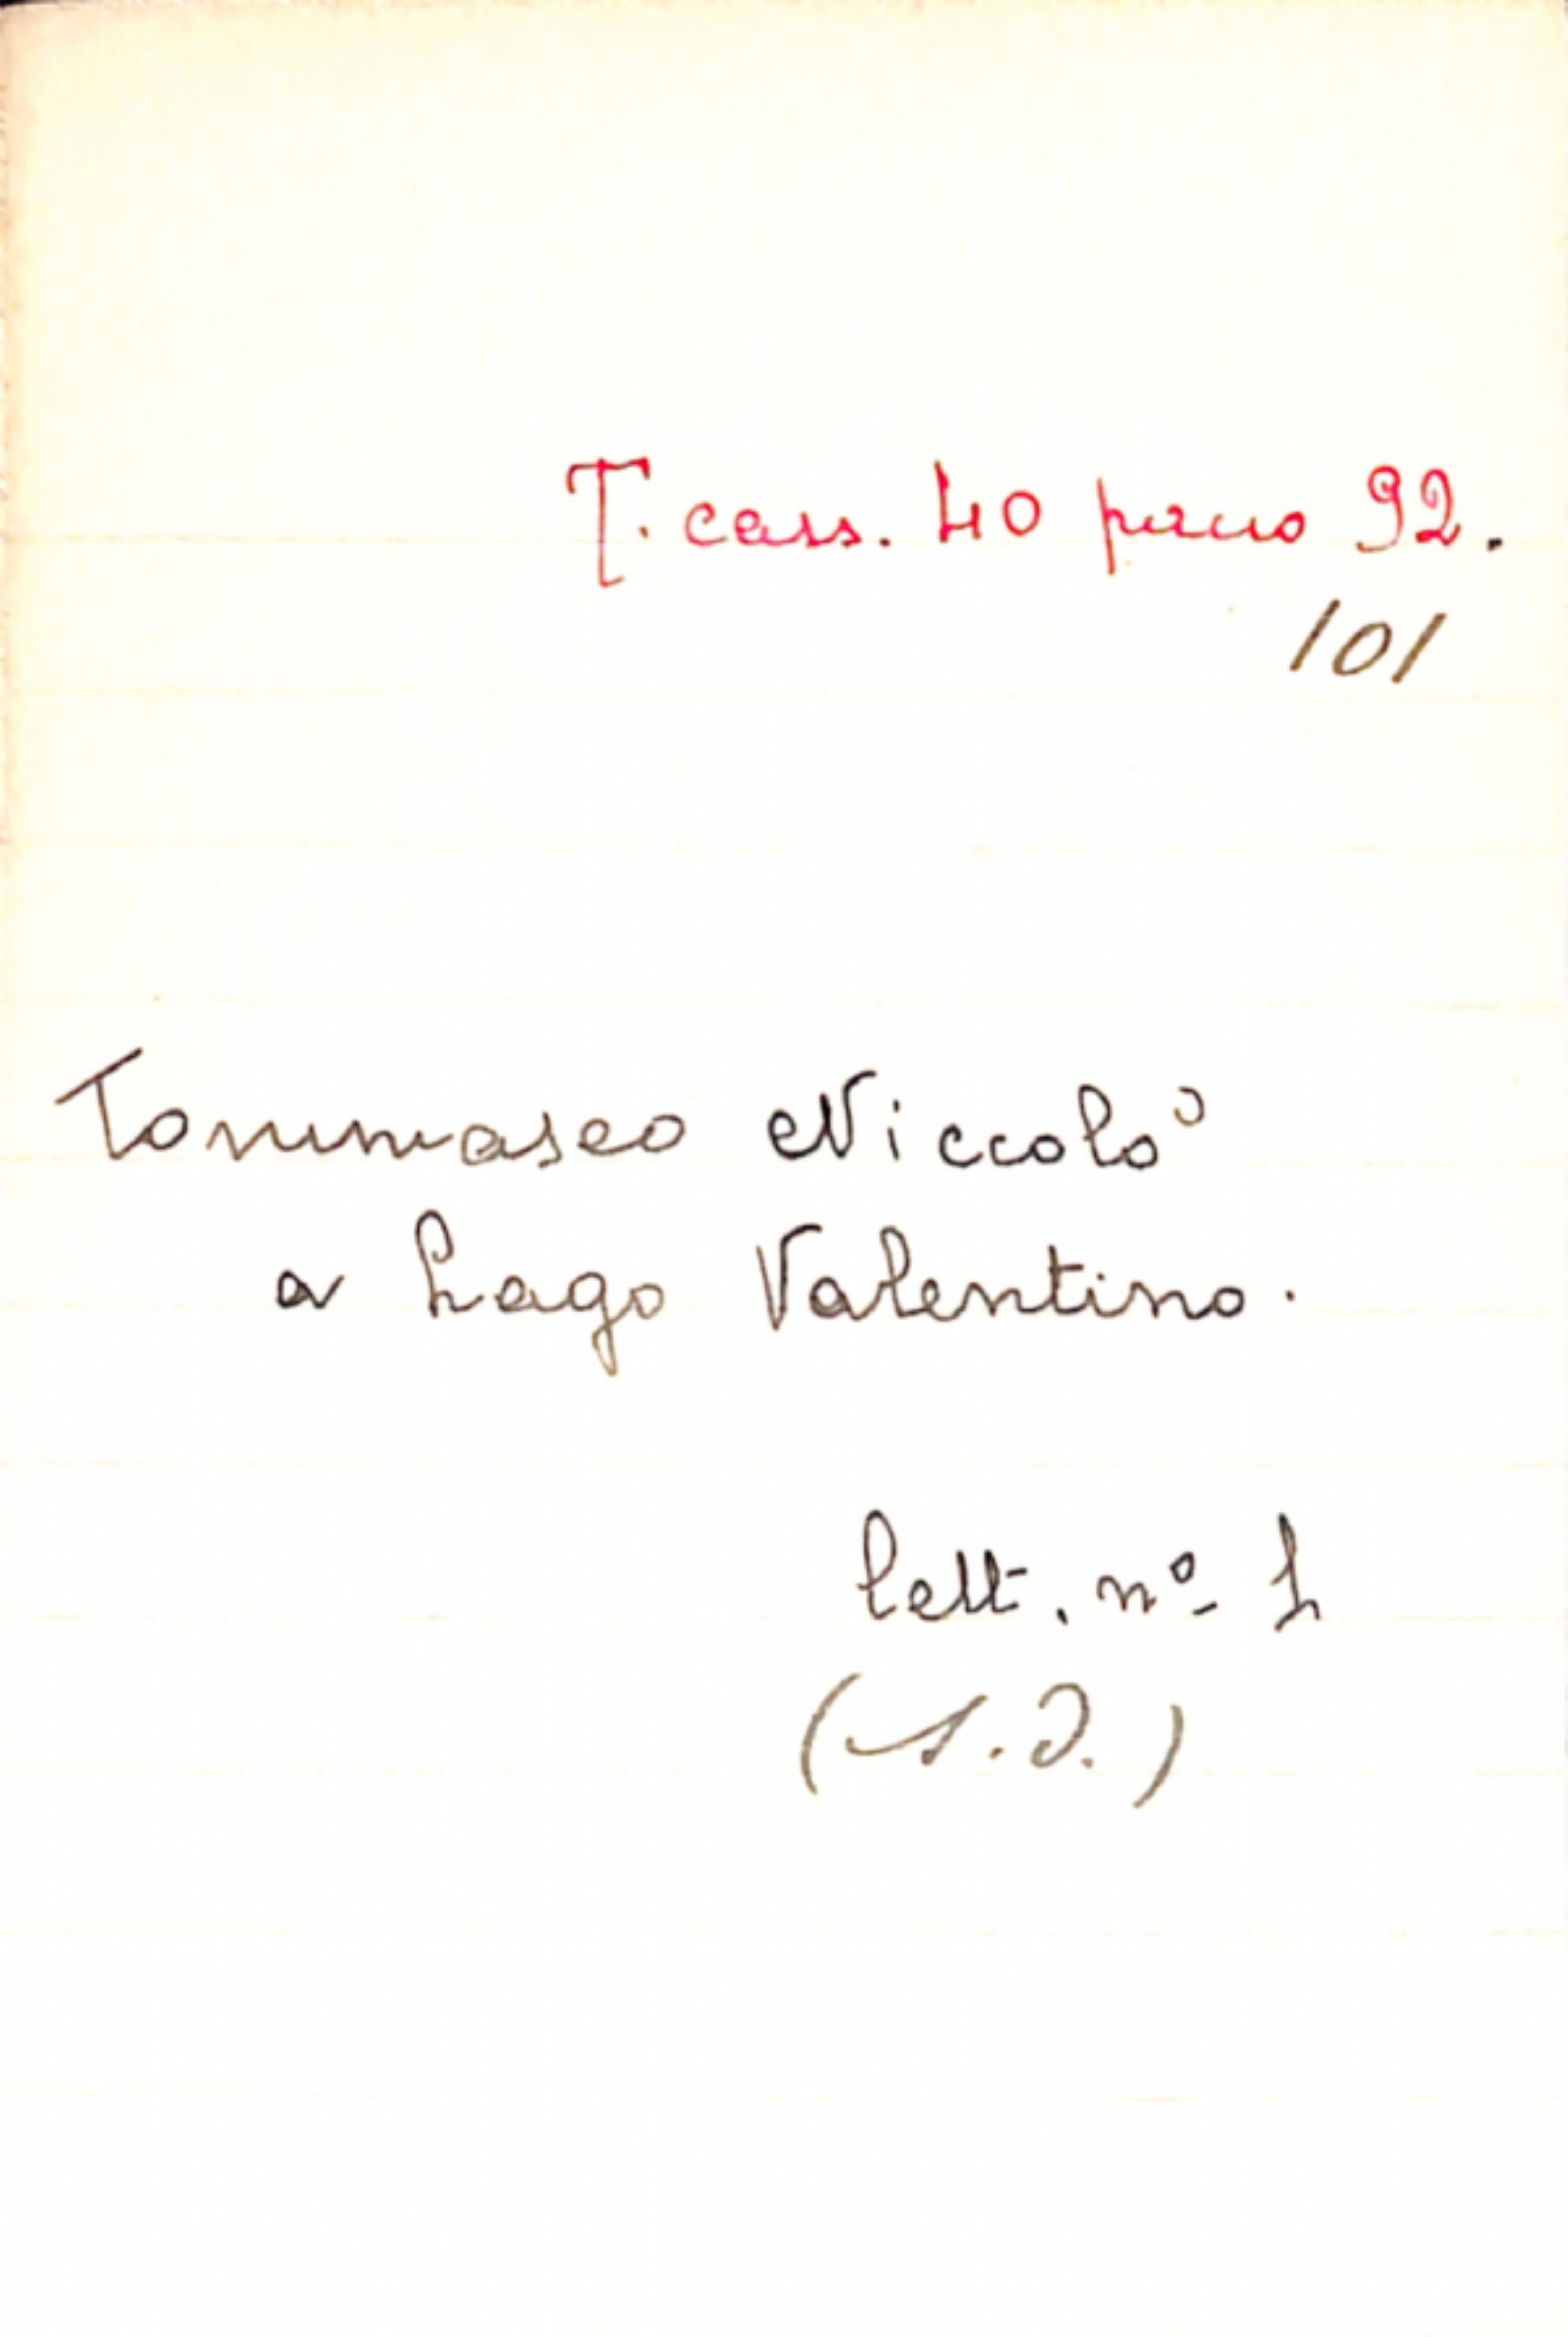 T. cass. 40 pacco 92.
101
Tommaseo Niccolò
a Lago Valentino.
lett. nº 1
(s.d.)